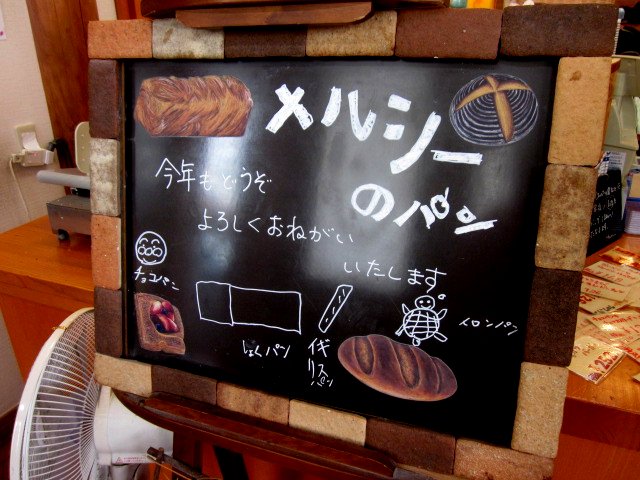 メルシー
のパン
今年もどうぞ
よろしくおねがい
いたします
チョコパン
しょくパン
イギリスパン
メロンパン